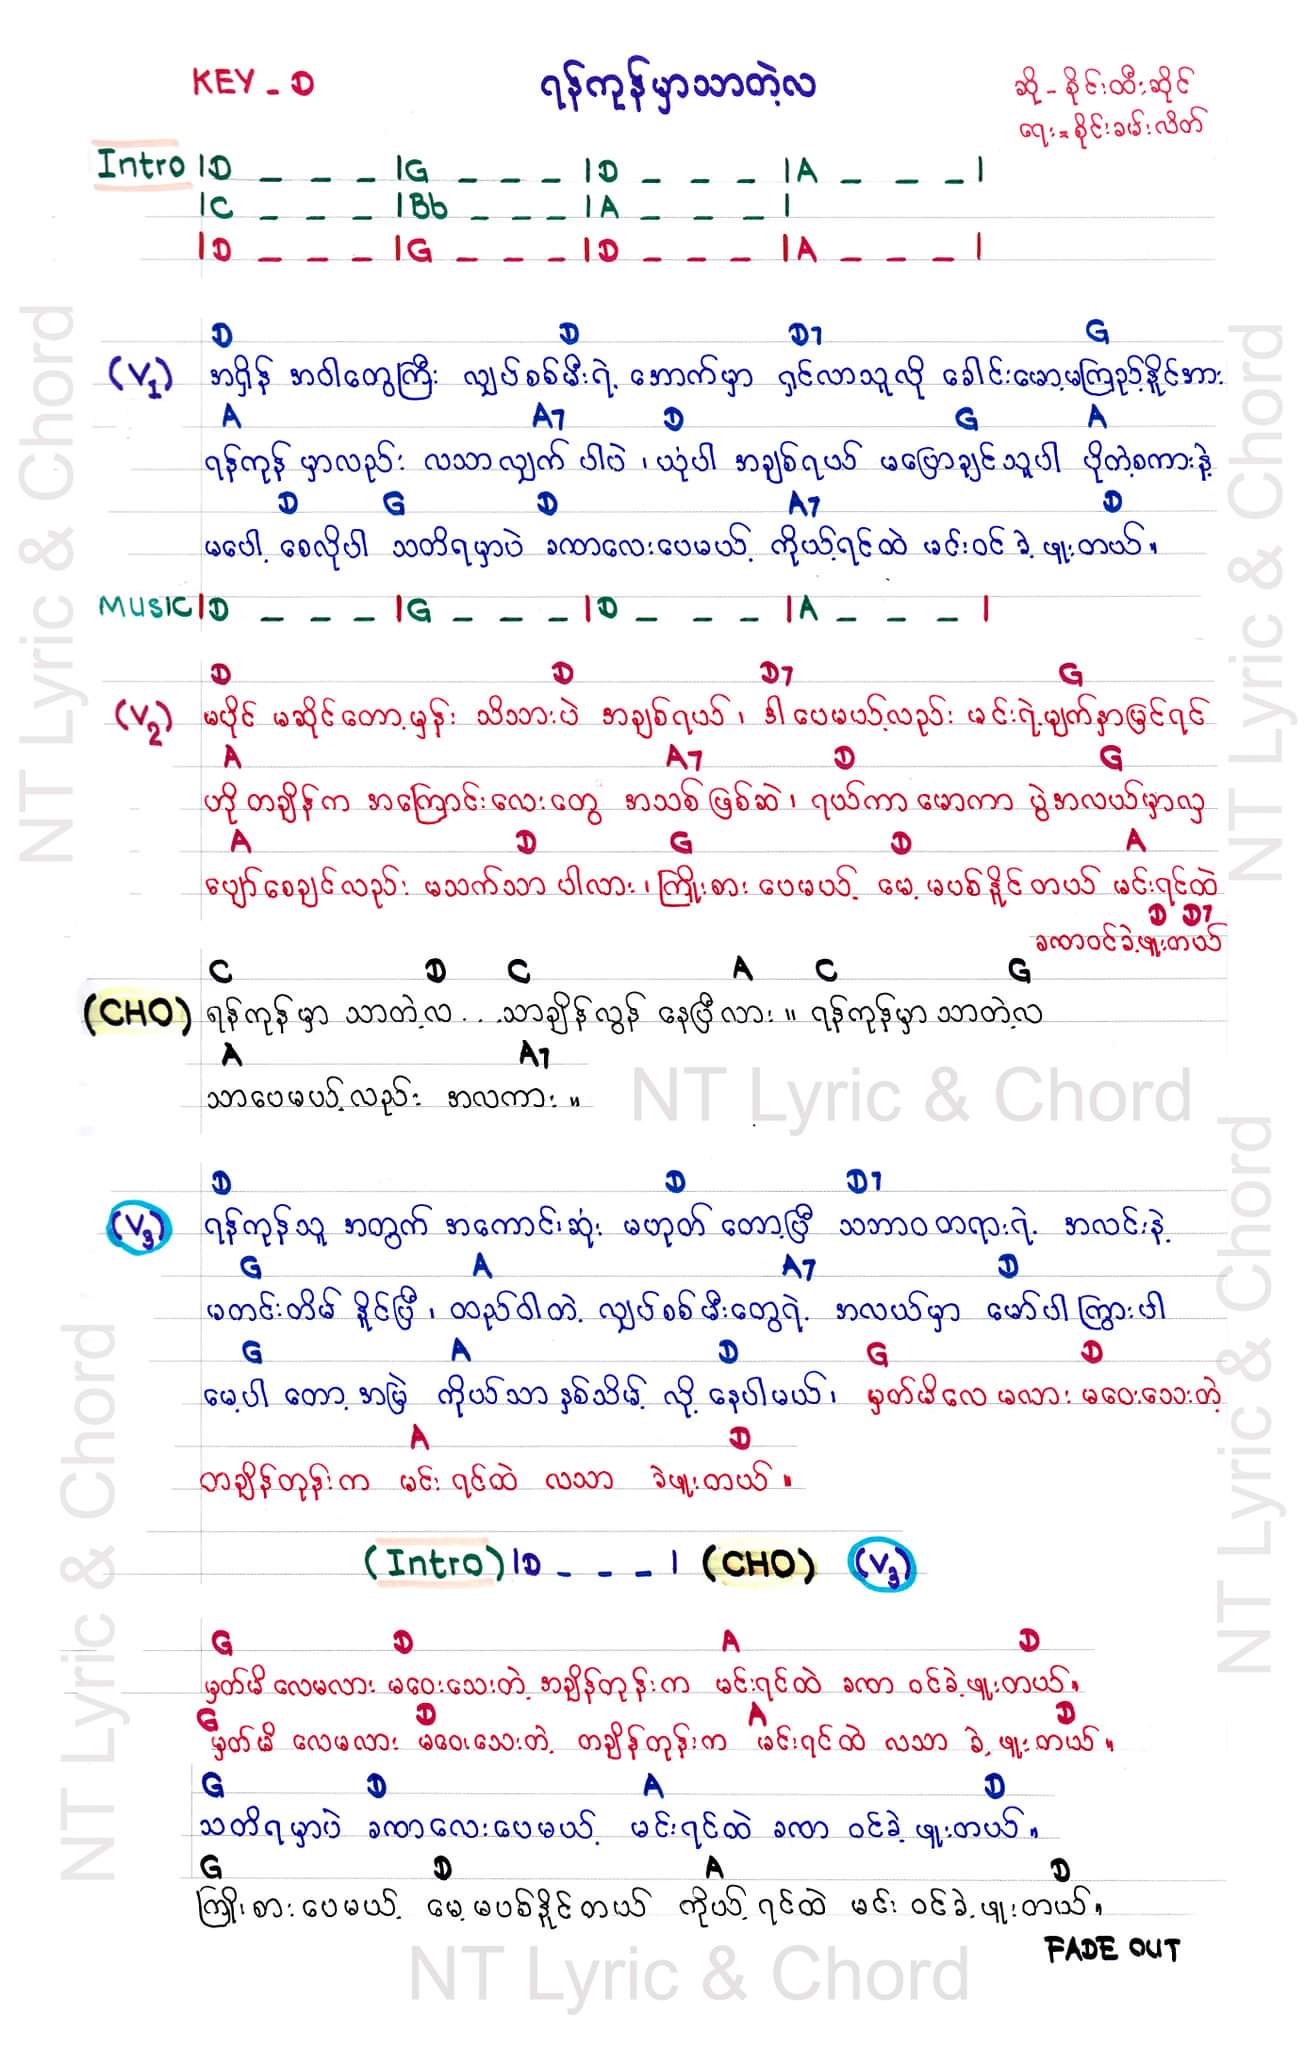 KEY - D
ရန်ကုန်မှာသာတဲ့လ
ဆို - စိုင်းထီးဆိုင်
ရေး = စိုင်းခမ်းလိတ်
Intro |D _ _ _ |G _ _ _ |D _ _ _ |A _ _ _ |
|C _ _ _ |Bb _ _ _ |A _ _ _ |
|D _ _ _ |G _ _ _ |D _ _ _ |A _ _ _ |
D D D7 G
(V1) အရှိန် အဝါတွေကြီး လျှပ်စစ်မီးရဲ့ အောက်မှာ ရှင်လာသူလို ခေါင်းမော့မကြည့်နိူင်အား
A A7 D G A
ရန်ကုန် မှာလည်း လသာလျှက် ပါပဲ ၊ ယုံပါ အချစ်ရယ် မပြောချင်သူပါ ပိုတဲ့စကားနဲ့
D G D A7 D
မပေါ့ စေလိုပါ သတိရမှာပဲ ခဏလေးပေမယ့် ကိုယ့်ရင်ထဲ မင်းဝင် ခဲ့ ဖူးတယ် ။
MUSIC |D _ _ _ |G _ _ _ |D _ _ _ |A _ _ _ |
D D D7 G
(V2) မပိုင် မဆိုင်တော့မှန်း သိသားပဲ အချစ်ရယ် ၊ ဒါ ပေမယ့်လည်း မင်းရဲ့မျက်နှာမြင်ရင်
A A7 D G
ဟို တချိန်က အကြောင်းလေးတွေ အသစ် ဖြစ်ဆဲ ၊ ရယ်ကာ မောကာ ပွဲအလယ်မှာလှ
A D G D A
ပျော်စေချင်လည်း မသက်သာ ပါလား ၊ ကြိုးစား ပေမယ့် မေ့ မပစ်နိူင်တယ် မင်းရင်ထဲ
D D7
ခဏဝင်ခဲ့ဖူးတယ်
C D C A C G
(CHO) ရန်ကုန်မှာ သာတဲ့လ ... သာချိန်လွန် နေပြီလား ။ ရန်ကုန်မှာသာတဲ့လ
A A7
သာပေမယ့်လည်း အလကား ။
D D D7
(V3) ရန်ကုန်သူ အတွက် အကောင်းဆုံး မဟုတ် တော့ပြီ သဘာဝတရားရဲ့ အလင်းနဲ့
G A A7 D
မတင်းတိမ် နိူင်ပြီ ၊ ထည်ဝါတဲ့ လျှပ်စစ်မီးတွေရဲ့ အလယ်မှာ မော်ပါ ကြွားပါ
G A D G D
မေ့ပါ တော့ အမြဲ ကိုယ်သာ နှစ်သိမ့် လို့ နေပါမယ် ၊ မှတ်မိလေ မလား မဝေးသေးတဲ့
A D
တချိန်တုန်းက မင်း ရင်ထဲ လသာ ခဲဖူးတယ် ။
(Intro) |D _ _ _ | (CHO) (V3)
G D A D
မှတ်မိ လေမလား မဝေးသေးတဲ့ အချိန်တုန်းက မင်းရင်ထဲ ခဏ ဝင်ခဲ့ဖူးတယ် ။
G D A D
မှတ်မိ လေမလား မဝေးသေးတဲ့ တချိန်တုန်းက မင်းရင်ထဲ လသာ ခဲ့ ဖူးတယ် ။
G D A D
သတိရမှာပဲ ခဏလေးပေမယ့် မင်းရင်ထဲ ခဏ ဝင်ခဲ့ဖူးတယ် ။
G D A D
ကြိုးစားပေမယ့် မေ့မပစ်နိူင်တယ် ကိုယ့် ရင်ထဲ မင်း ဝင်ခဲ့ဖူးတယ် ။
FADE OUT
NT Lyric & Chord
NT Lyric & Chord
NT Lyric & Chord
NT Lyric & Chord
NT Lyric & Chord
NT Lyric & Chord